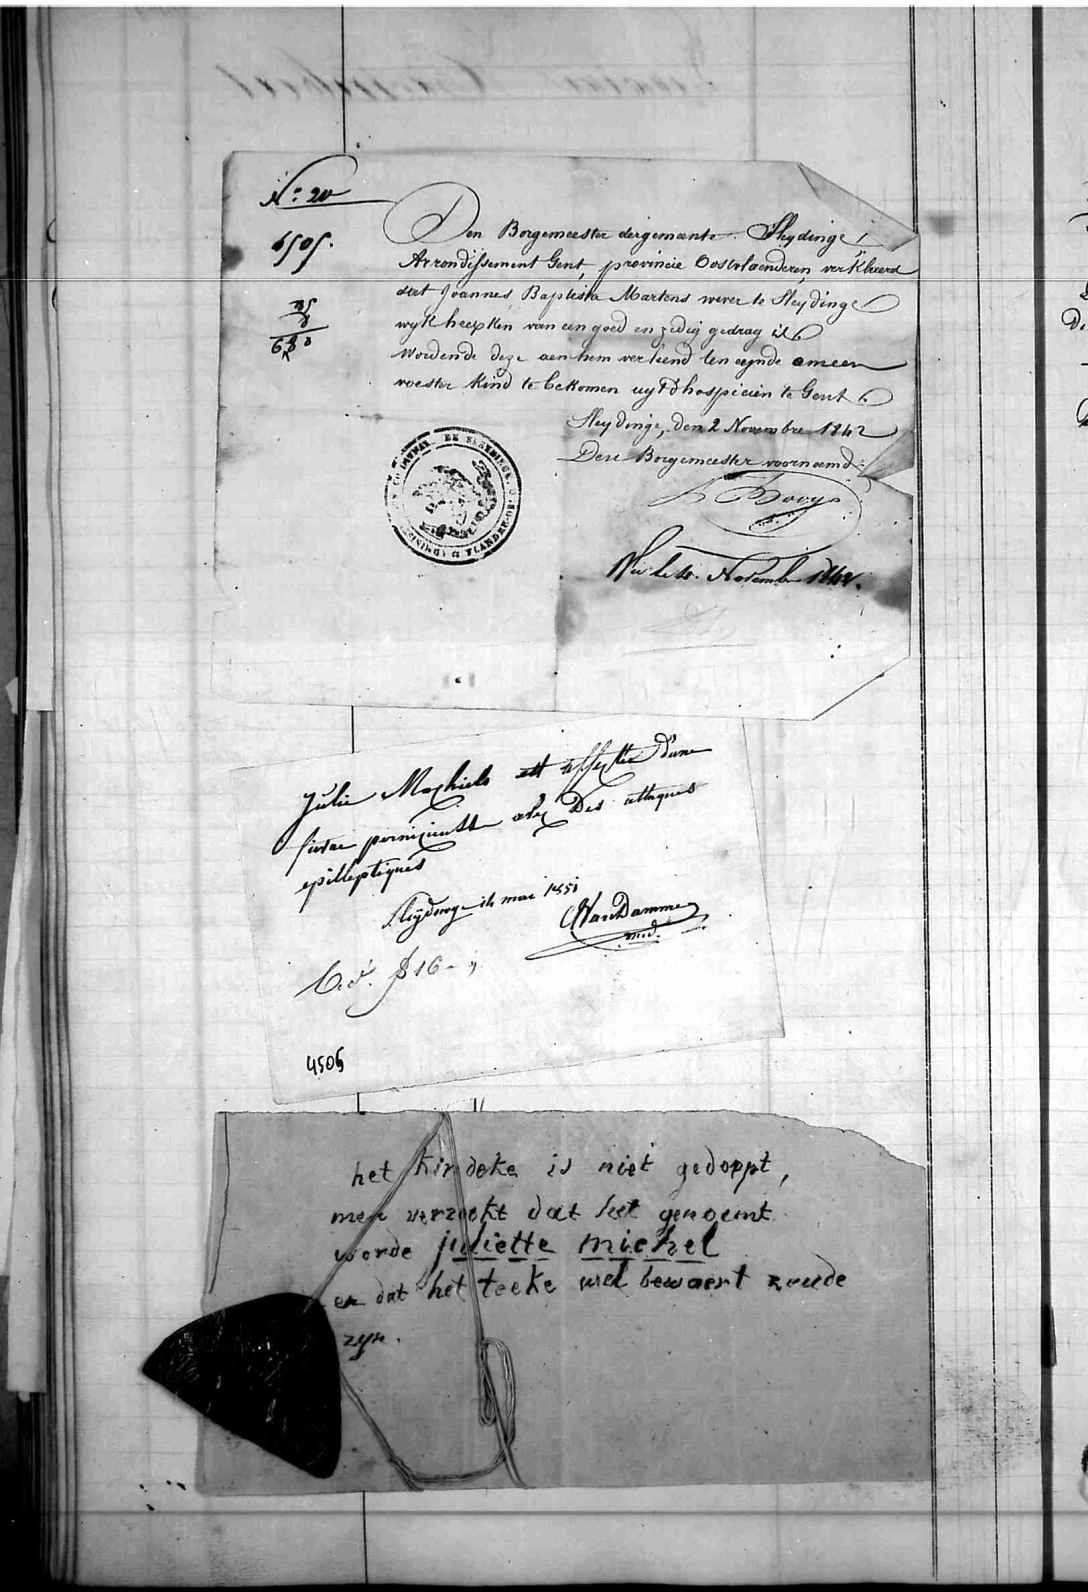 N.º 20
Den Borgemeester dergemeente Sleydinge
4505.
Arrondissement Gent, provincie Oostvlaenderen, verkleerd
dat Joannes Baptista Martens wever te Sleydinge
wyk heepken van een goed en zedig gedrag is
Wordende deze aen hem verleend ten eynde
voester kind te bekomen uyt d'hospicien te Gent
Sleydinge, den 2 Novembre 1842
Den Borgemeester voornoemd
Novembre 1842.
Julie Mechiels est affectée d'une
fievre pernicieuse avec Des attaques
epilleptiques
Sleydinge mai 1851
VanDamme
med.
4505
het kindeke is niet gedoppt,
men verzoekt dat het genoemt
worde juliette michel
en dat het teeke wel bewaert zoude
zyn.